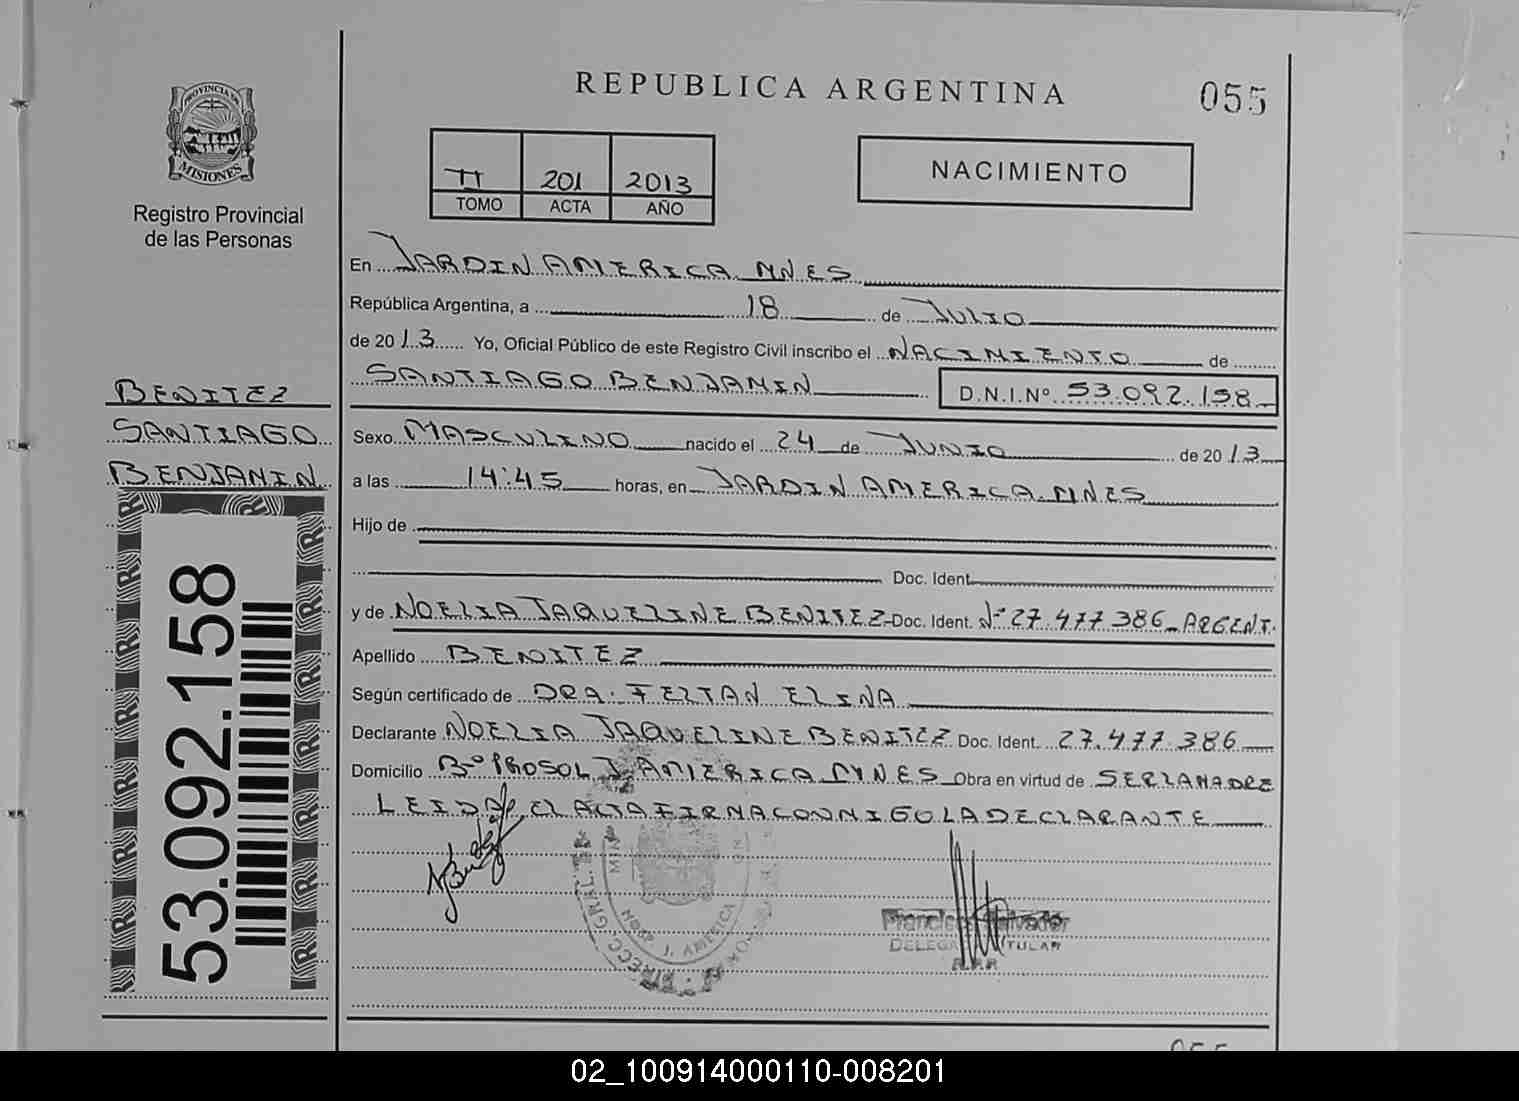 REPUBLICA ARGENTINA
055
PROVINCIA DE
MISIONES
Registro Provincial
de las Personas
II 201 2013
TOMO ACTA AÑO
NACIMIENTO
En JARDIN AMERICA MNES
República Argentina, a 18 de JULIO
de 2013 Yo, Oficial Público de este Registro Civil inscribo el NACIMIENTO de
SANTIAGO BENJAMIN D.N.I.Nº 53.092.158
Sexo MASCULINO nacido el 24 de JUNIO de 2013
a las 14:45 horas, en JARDIN AMERICA MNES
Hijo de
Doc. Ident.
y de NOELIA JAQUELINE BENITEZ Doc. Ident. Nº 27.477.386 ARGENT.
Apellido BENITEZ
Según certificado de DRA: FELTAN ELINA
Declarante NOELIA JAQUELINE BENITEZ Doc. Ident. 27.477.386
Domicilio Bº PROSOL J. AMERICA MNES Obra en virtud de SER LA MADRE
LEIDA EL ACTA FIRMA CONMIGO LA DECLARANTE
BENITEZ
SANTIAGO
BENJAMIN
53.092.158
HOSP J. AMERICA
DELEGA TITULAR
02_100914000110-008201